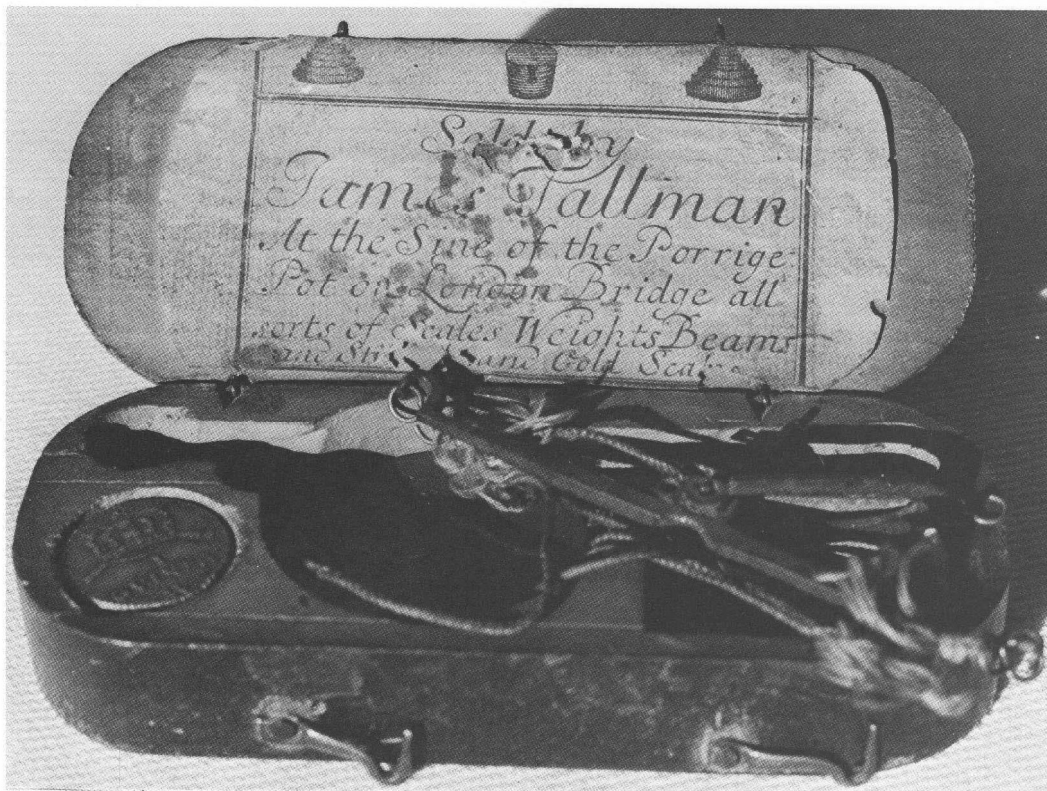 Sold by
James Tallman
At the Sine of the Porrige
Pot on London Bridge all
sorts of Scales Weights Beams
and and Gold Scales